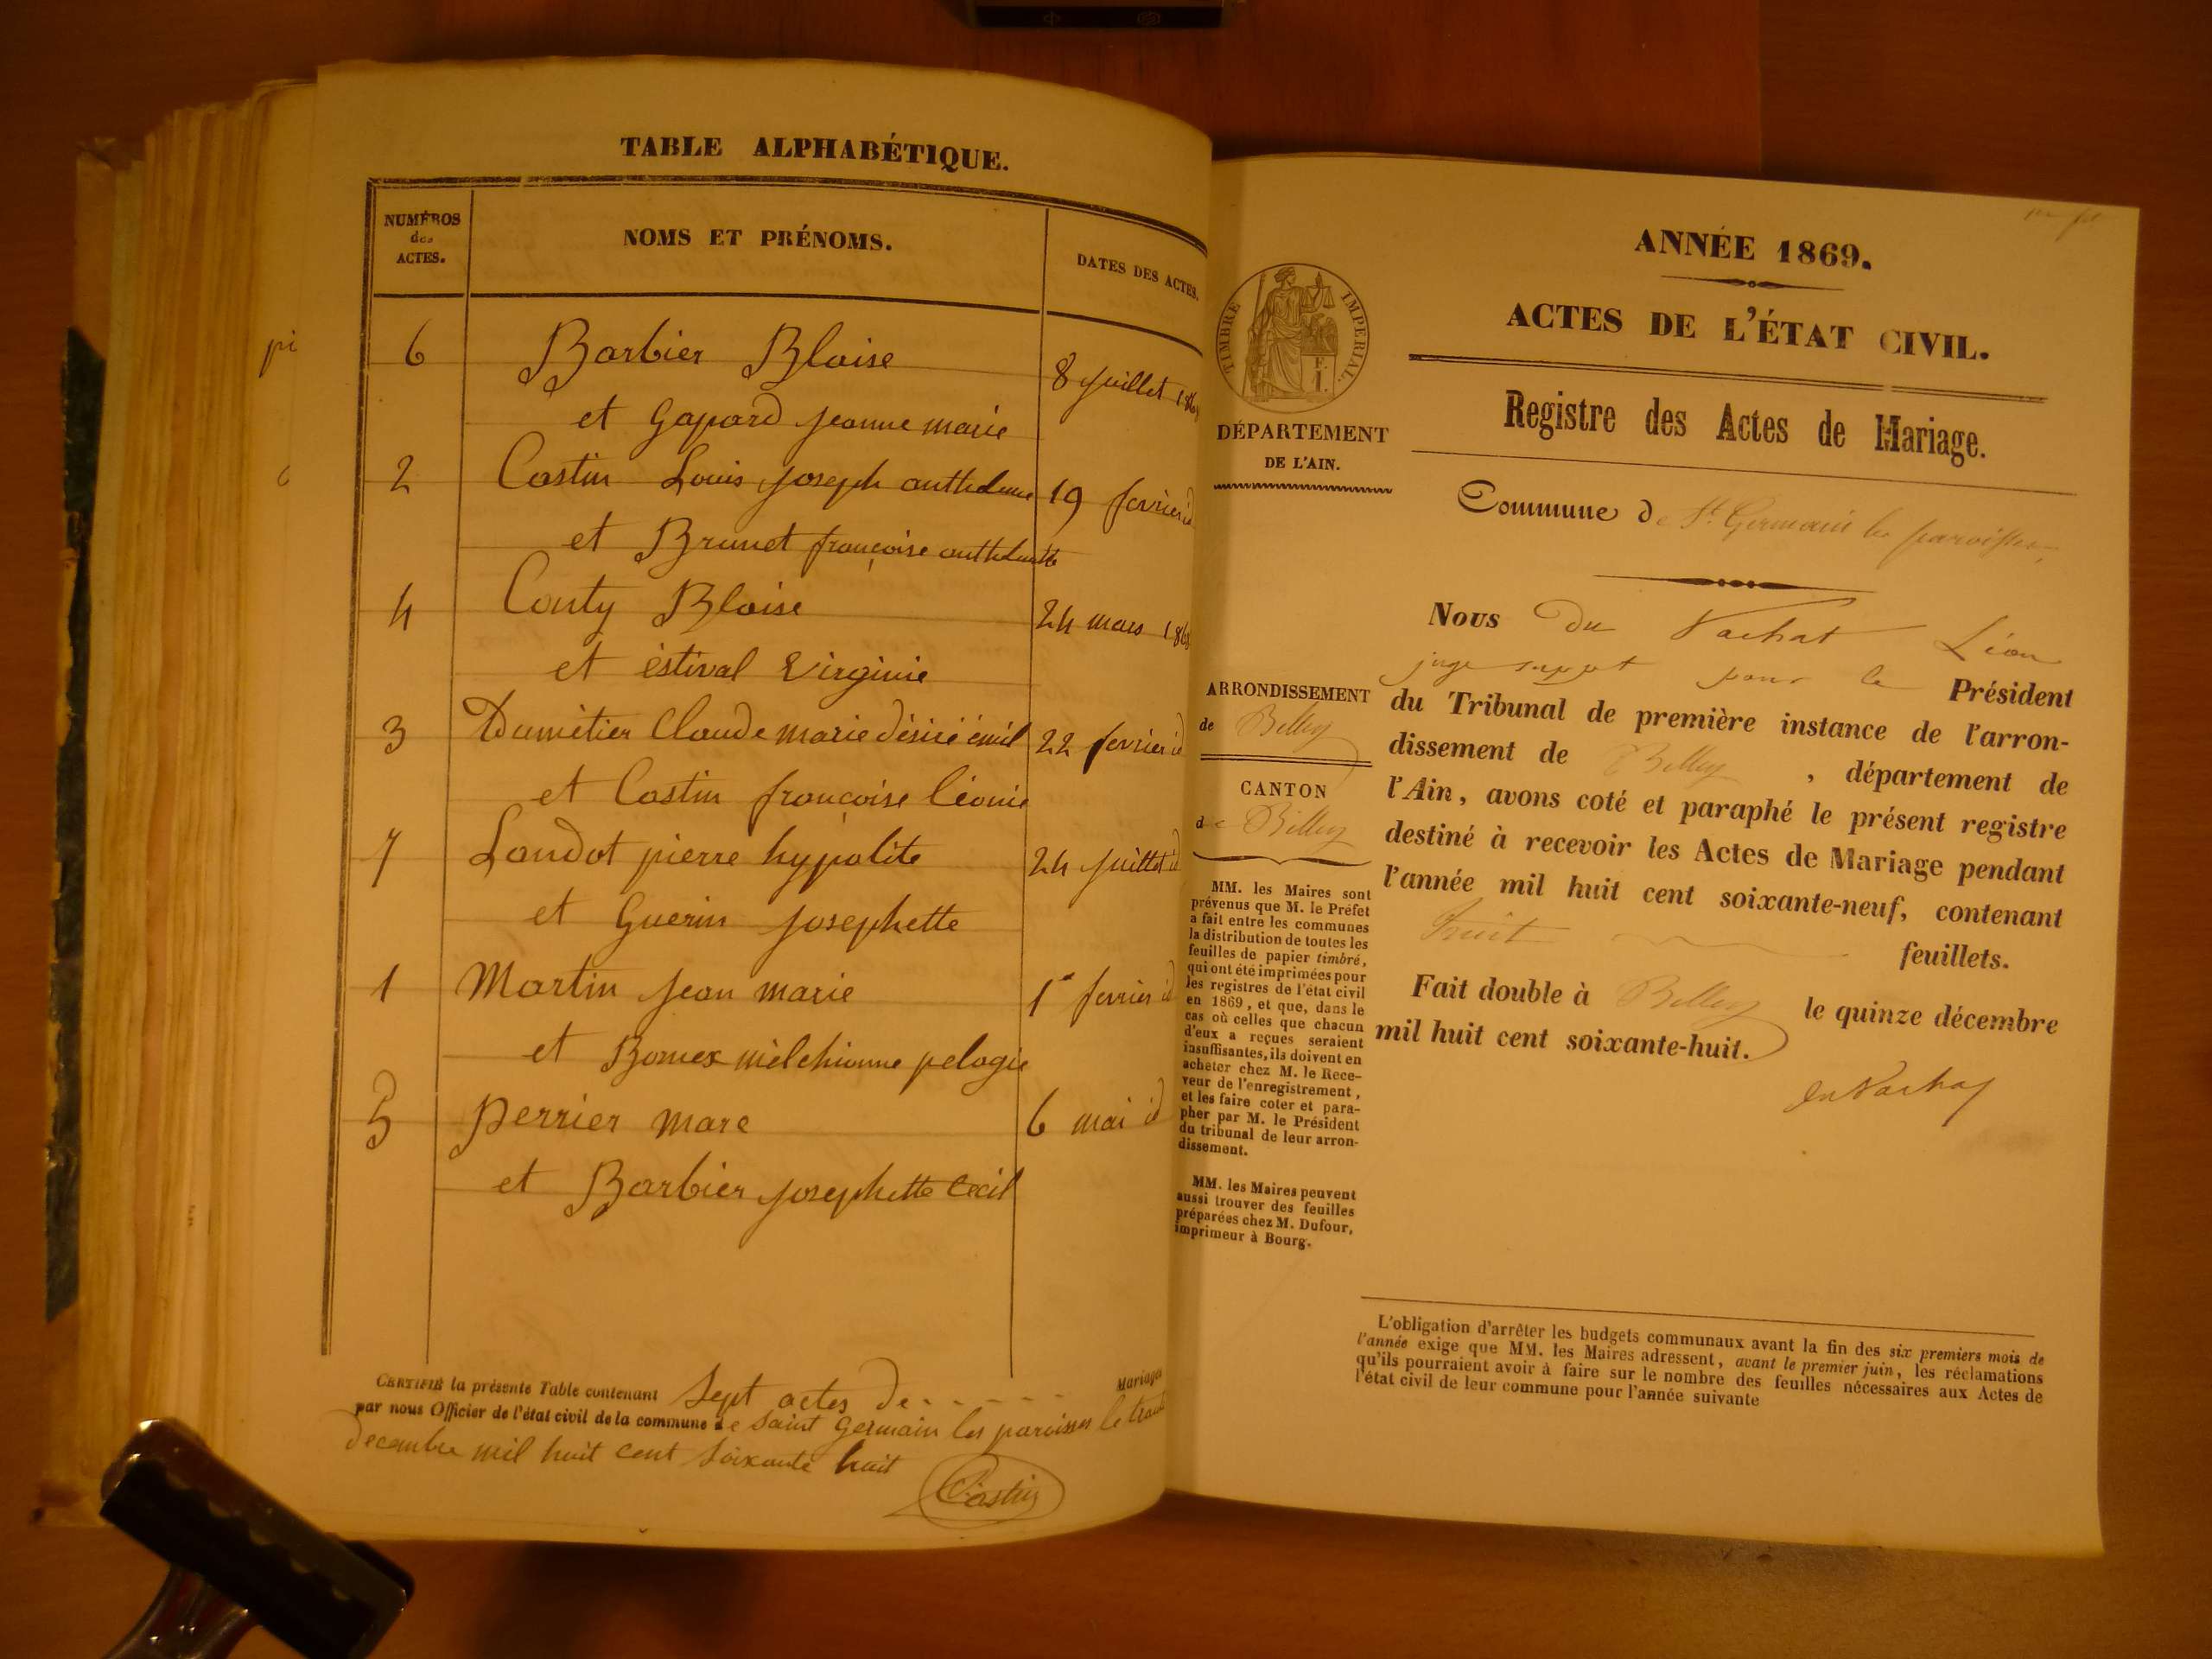 TABLE ALPHABÉTIQUE.
NUMÉROS des ACTES.
NOMS ET PRÉNOMS.
DATES DES ACTES.
6 Barbier Blaise 8 juillet 186
et Gapard jeanne marie
2 Castin Louis joseph anthelme 19 fevrier id
et Brunet françoise anthelmette
4 Conty Blaise 24 mars 1868
et éstival Virginie
3 Dumétier Claude marie désiré émil 22 fevrier id
et Castin françoise léonie
7 Landot pierre hypolite 24 juillet id
et Guerin josephette
1 Martin jean marie 1er fevrier id
et Bomex melchionne pelagie
5 perrier marc 6 mai id
et Barbier josephette Cecil
CERTIFIÉ la présente Table contenant Sept actes de - - - - - Mariages
par nous Officier de l'état civil de la commune de Saint Germain les paroisses le trente
decembre mil huit cent soixante huit
Castin
pi
ANNÉE 1869.
ACTES DE L'ÉTAT CIVIL.
TIMBRE IMPERIAL.
E. I.
Registre des Actes de Mariage.
DÉPARTEMENT
DE L'AIN.
Commune de St. Germain les paroisses
Nous Du Vachat Léon
juge suppt pour le Président
du Tribunal de première instance de l'arron-
dissement de Belley, département de
l'Ain, avons coté et paraphé le présent registre
destiné à recevoir les Actes de Mariage pendant
l'année mil huit cent soixante-neuf, contenant
huit feuillets.
Fait double à Belley le quinze décembre
mil huit cent soixante-huit.
du Vachat
ARRONDISSEMENT
de Belley
CANTON
de Belley
MM. les Maires sont
prévenus que M. le Préfet
a fait entre les communes
la distribution de toutes les
feuilles de papier timbré,
qui ont été imprimées pour
les registres de l'état civil
en 1869, et que, dans le
cas où celles que chacun
d'eux a reçues seraient
insuffisantes, ils doivent en
acheter chez M. le Rece-
veur de l'enregistrement,
et les faire coter et para-
pher par M. le Président
du tribunal de leur arron-
dissement.
MM. les Maires peuvent
aussi trouver des feuilles
préparées chez M. Dufour,
imprimeur à Bourg.
L'obligation d'arrêter les budgets communaux avant la fin des six premiers mois de
l'année exige que MM. les Maires adressent, avant le premier juin, les réclamations
qu'ils pourraient avoir à faire sur le nombre des feuilles nécessaires aux Actes de
l'état civil de leur commune pour l'année suivante